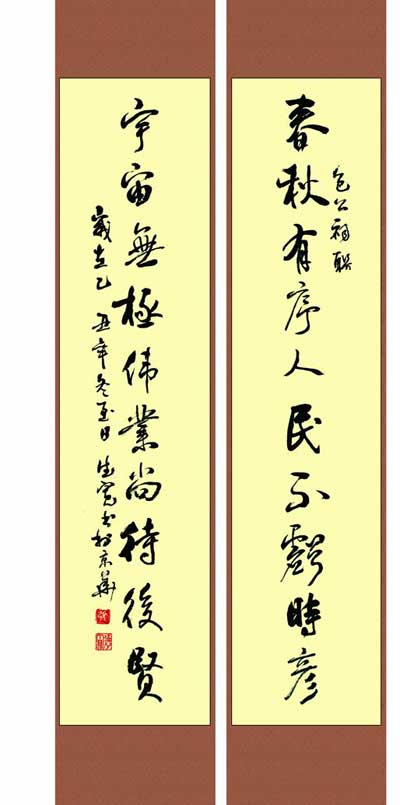 春秋有序人民不虧時彦
包公祠联
宇宙無極偉業尚待後賢
歲在乙丑年冬至日書於京華